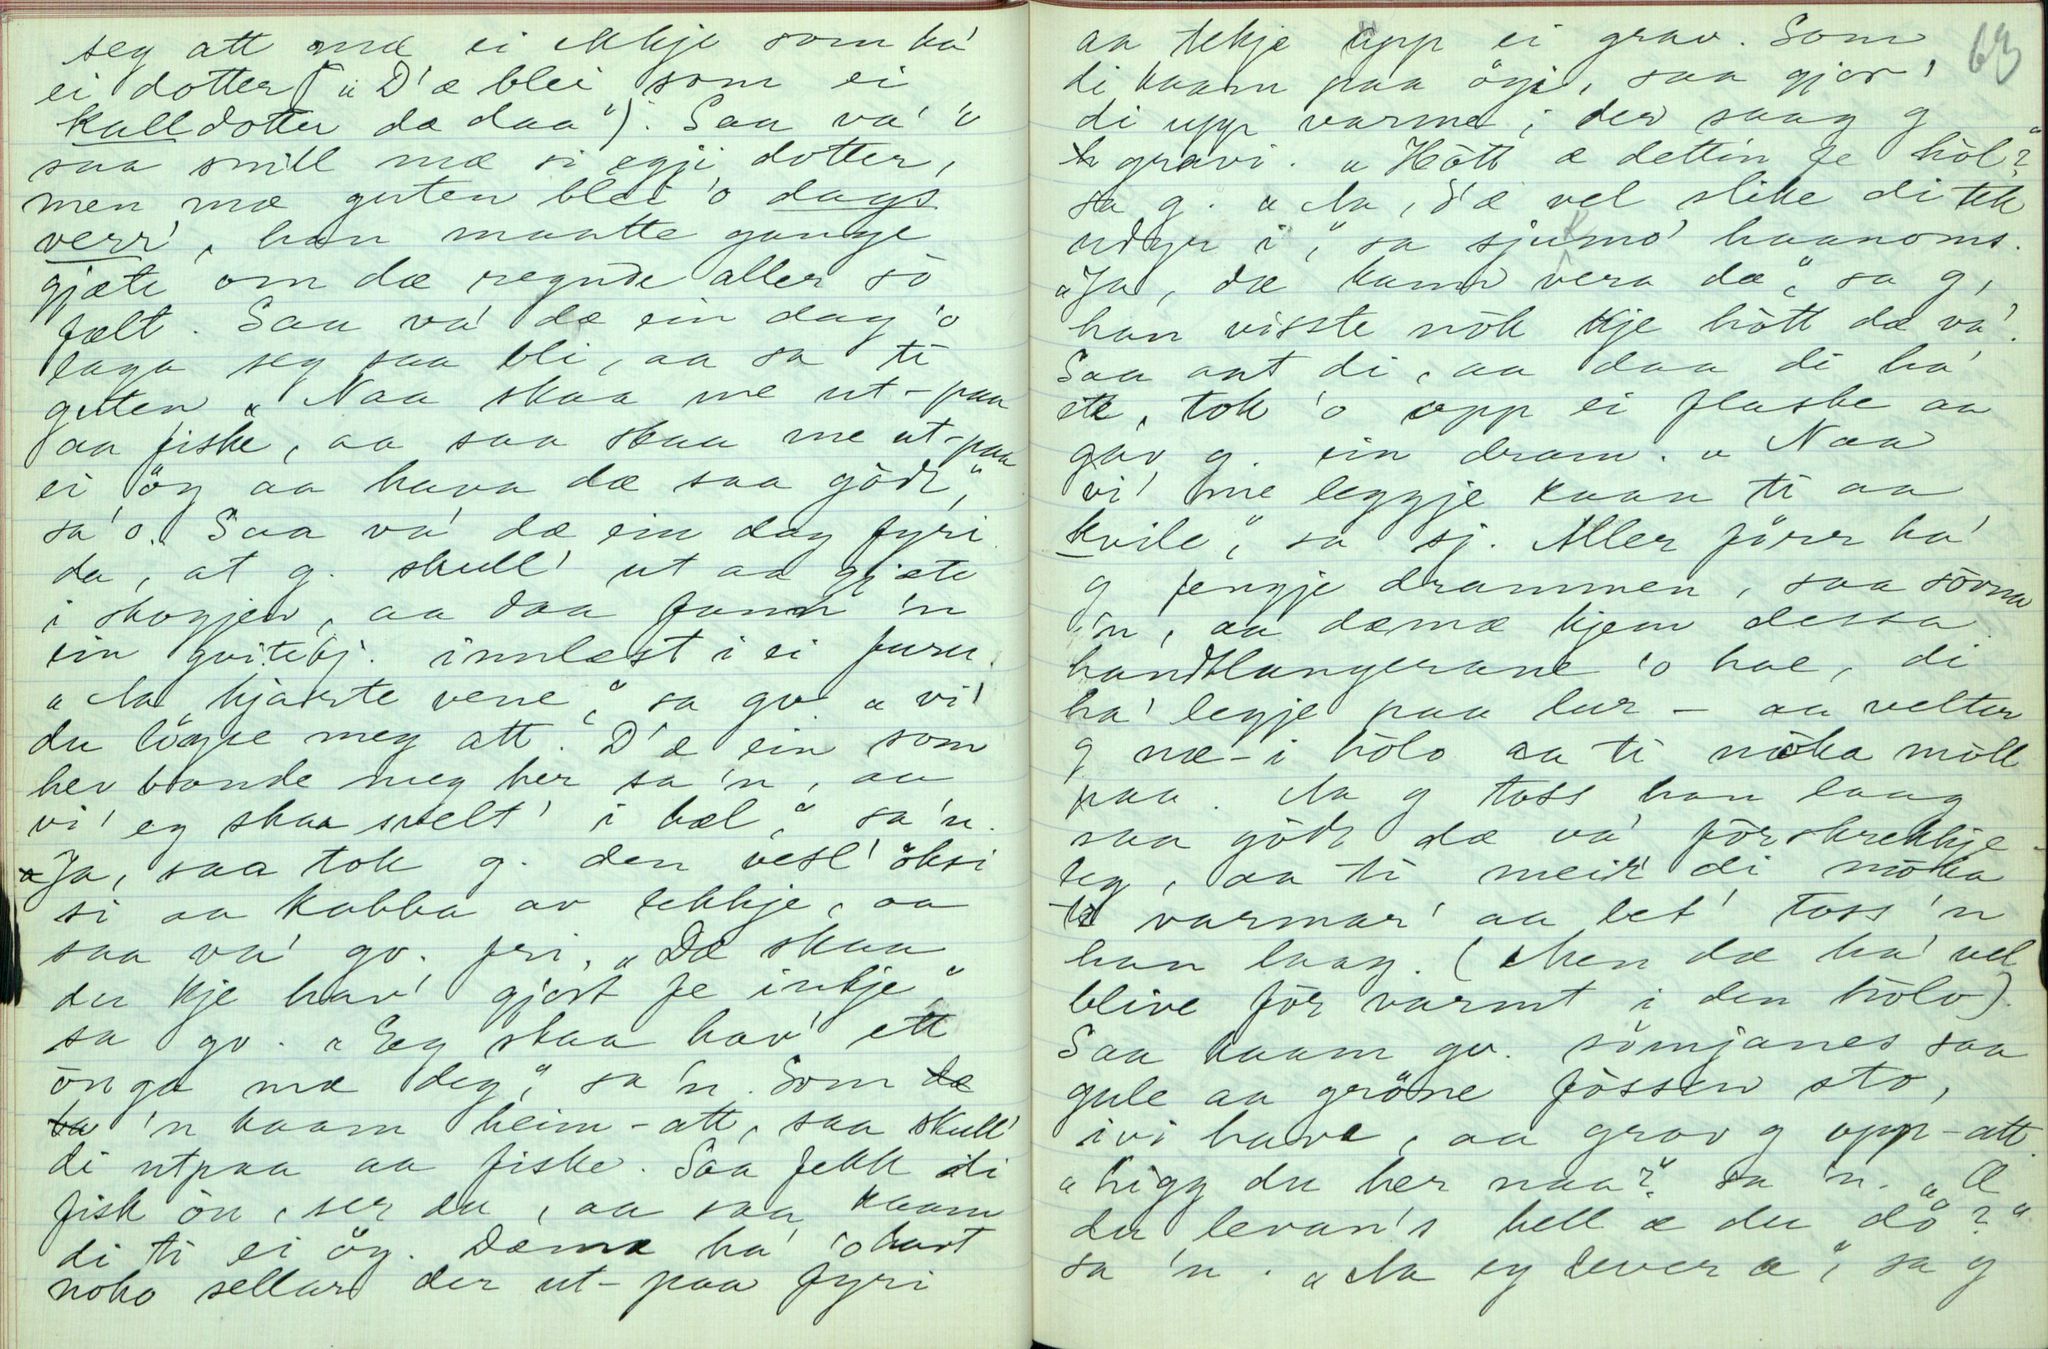 seg att mæ ei ekkje som ha'
ei dotter („D'æ blei som ei
kulldotter da daa"). Saa va' 'o
saa snill mæ si egji dotter,
men mæ guten blei 'o dags
verr', han maatte gange
gjæte om dæ regnde aller so
fælt. Saa va' dæ ein dag 'o
laga seg saa bli, aa sa ti
guten „Naa skaa me ut-paa
aa fiske, aa saa skaa me ut-paa
ei öy aa hava dæ saa gödt,"
sa 'o. Saa va' dæ ein dag fyri
da, at g. skull' ut aa gjæte
i skogjen, aa daa fann 'n
ein gvitebj. innlæst i ei furu.
„Aa hjarte vene," sa gv. „vi'
du löyse meg att. D'æ ein som
hev bonde meg her sa 'n, aa
vi' eg skaa svelt' i hæl," sa 'n.
Ja, saa tok g. den vesl' öksi
si aa kabba av lekkje, aa
saa va' gv. fri. „Dæ skaa
du kje hav' gjort fe inkje,"
sa gv. „Eg skaa hav' ett
önga mæ deg," sa 'n. Som
'n kaam heim-att, saa skull'
di utpaa aa fiske. Saa fekk di
fisk ön, ser du, aa saa kaam
di ti ei öy. Dæmæ ha' 'o havt
noko sellar der ut-paa fyri
63
aa tekje upp ei grav. Som
di kaam paa öyi, saa gjor'
di upp varme; der saag g
gravi. „Hött æ dettin fe höl?"
sa g. „Aa, d'æ vel slike di tek
udyr i," sa sjukmo' haanoms.
„Ja, dæ kann vera da," sa g,
han visste nök kje hött dæ va'.
Saa aat di, aa daa di ha'
ete, tok 'o upp ei flaske aa
gav g. ein dram. „Naa
vi' me leggje kaan ti aa
kvile," sa sj. Aller förr ha'
g fengje drammen, saa sövna
'n, aa dæmæ kjem dessa
handtlangerane 'o hae, di
ha' legje paa lur - aa velter
g næ-i hölo aa ti möka möll
paa. Aa g toss han laag
saa gödt dæ va' förskrekkje-
leg, aa ti meir' di möka
ti varmar' aa bet' toss 'n
han laag. (Men dæ ha' vel
blive för varmt i den hölo).
Saa kaam gv. sömjanes saa
gule aa gröne fössen sto,
ivi have, aa grov g upp-att.
„Ligg du her naa?" sa 'n. „Æ
du levan's hell æ du dö?"
sa 'n. „Aa eg lever æ," sa g